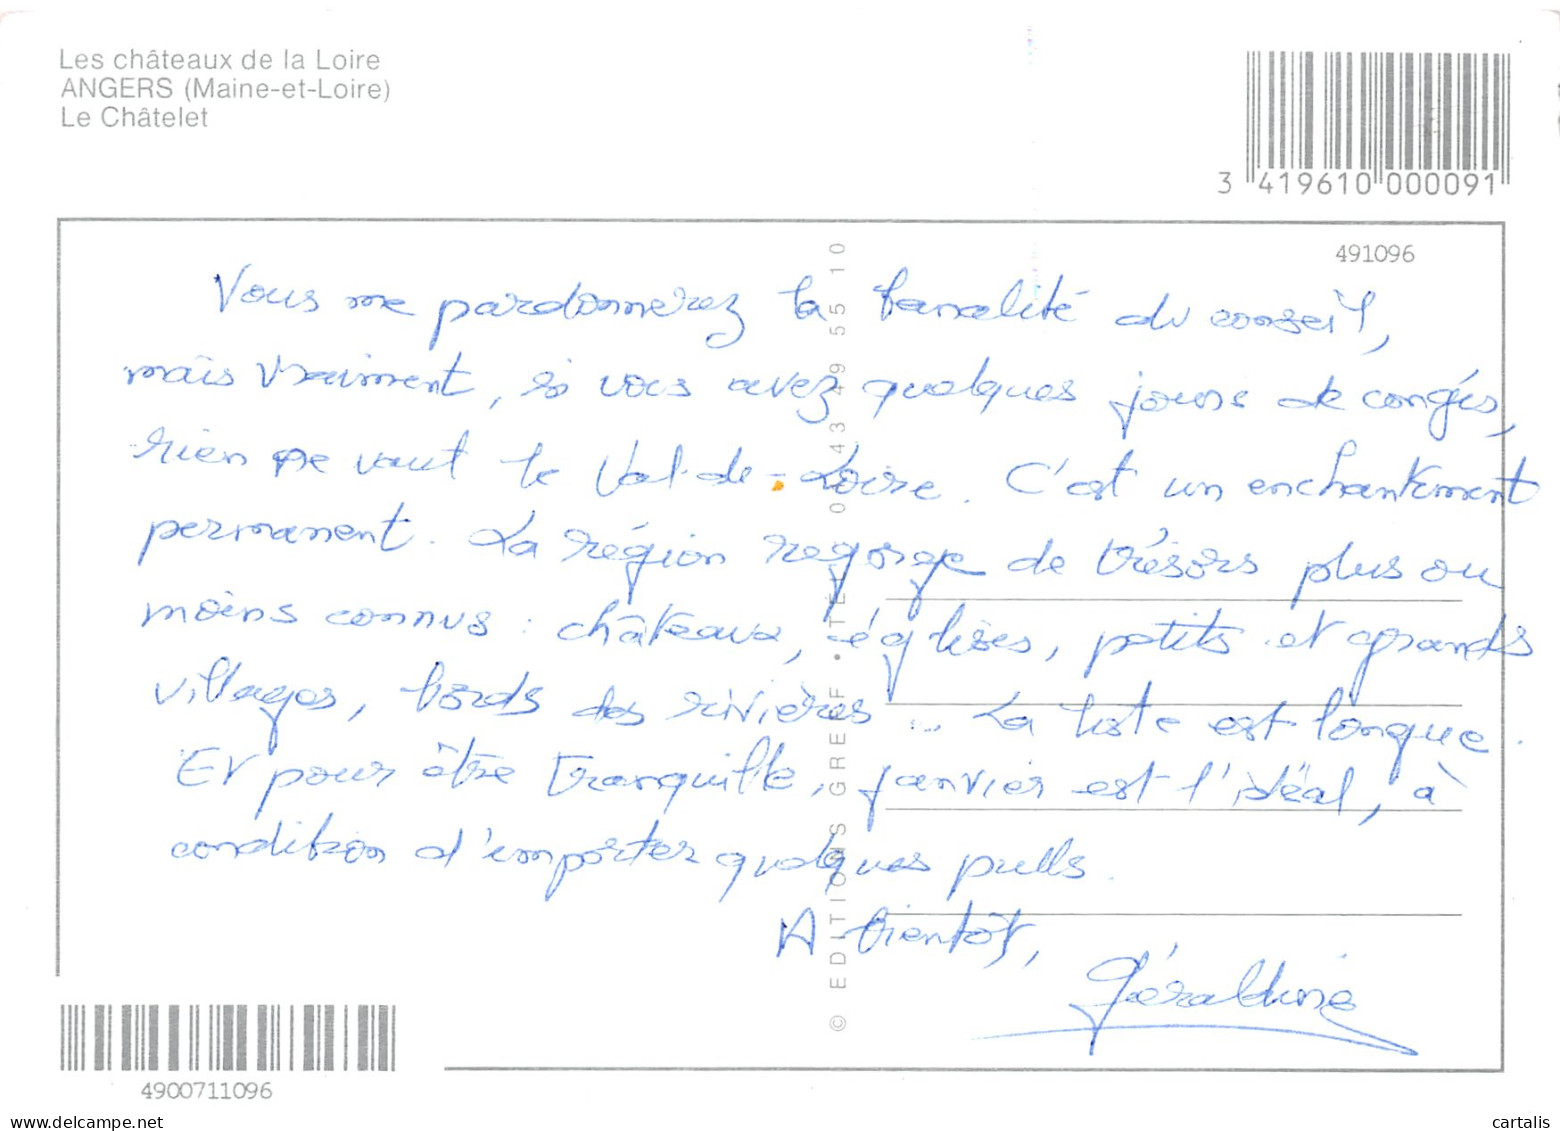 Les châteaux de la Loire
ANGERS (Maine-et-Loire)
Le Châtelet
3 419610 000091
491096
Vous me pardonnerez la banalité du conseil,
mais vraiment, si vous avez quelques jours de congés,
rien ne vaut le Val-de-Loire. C'est un enchantement
permanent. La région regorge de trésors plus ou
moins connus : châteaux, églises, petits et grands
villages, bords des rivières... La liste est longue.
Et pour être tranquille, janvier est l'idéal, à
condition d'emporter quelques pulls.
A bientôt,
Géraldine
© EDITIONS GREFF • TÉL 43 49 55 10
4900711096
delcampe.net
cartalis